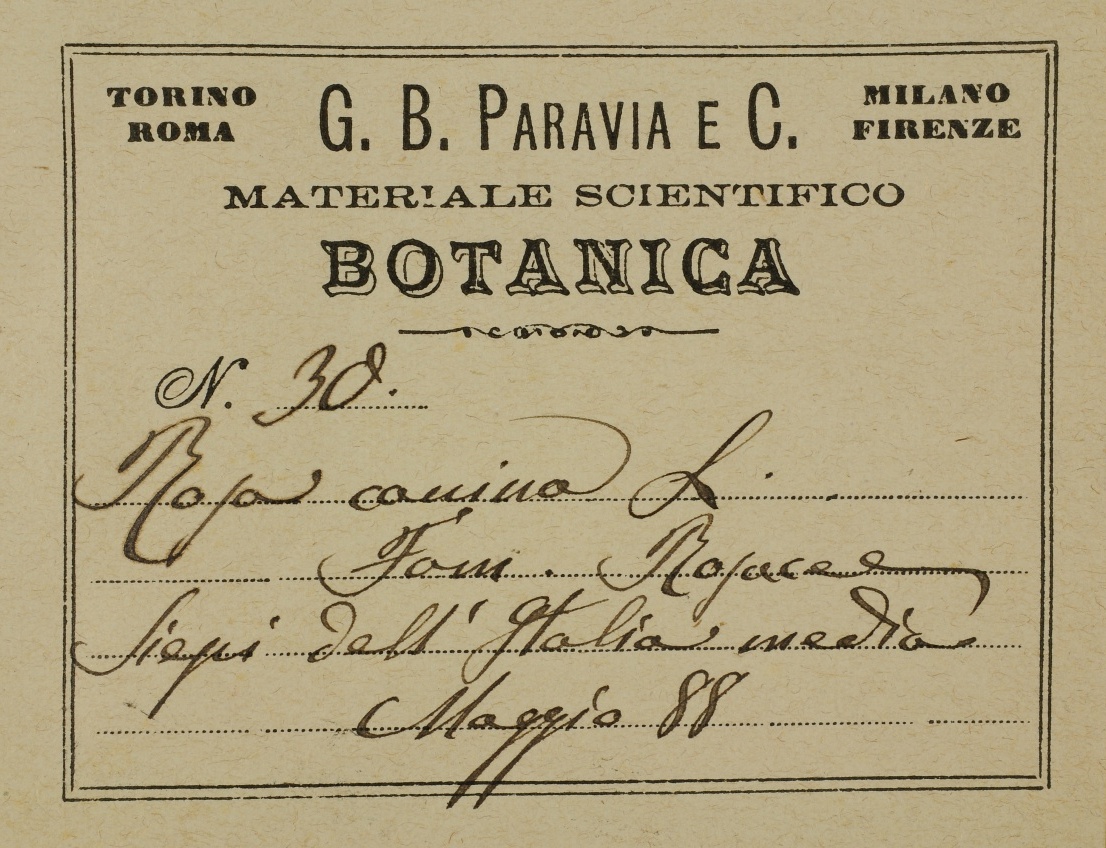 TORINO G. B. PARAVIA E C. MILANO
ROMA FIRENZE
MATERIALE SCIENTIFICO
BOTANICA
N. 30.
Rosa canina L.
Fam. Rosacee
Siepi dell' Italia media
Maggio 88